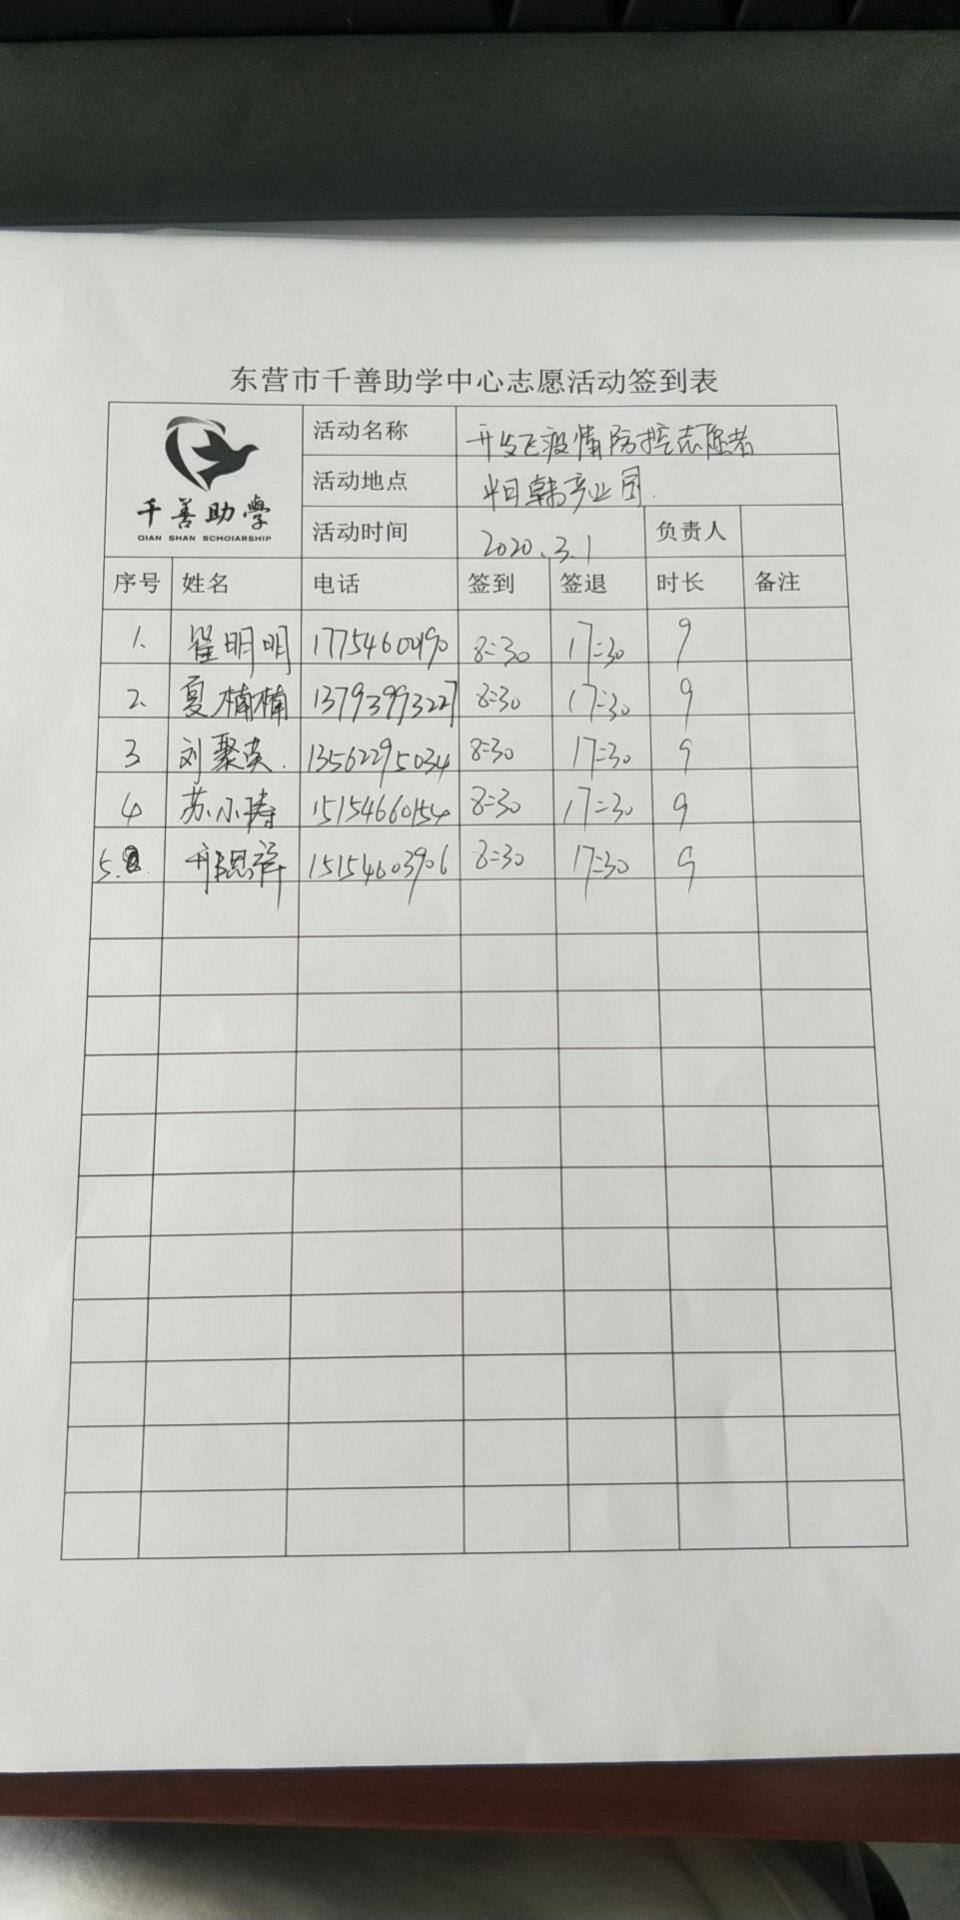 东营市千善助学中心志愿活动签到表
千善助學
QIAN SHAN SCHOIARSHIP
活动名称 开发区疫情防控志愿者
活动地点 中日韩产业园.
活动时间 2020.3.1 负责人
序号 姓名 电话 签到 签退 时长 备注
1. 翟明明 17754600190 8:30 17:30 9
2. 夏楠楠 13793993227 8:30 17:30 9
3 刘聚英. 13562295034 8:30 17:30 9
4 苏小涛 15154660154 8:30 17:30 9
5. 思祥 15154603906 8:30 17:30 9